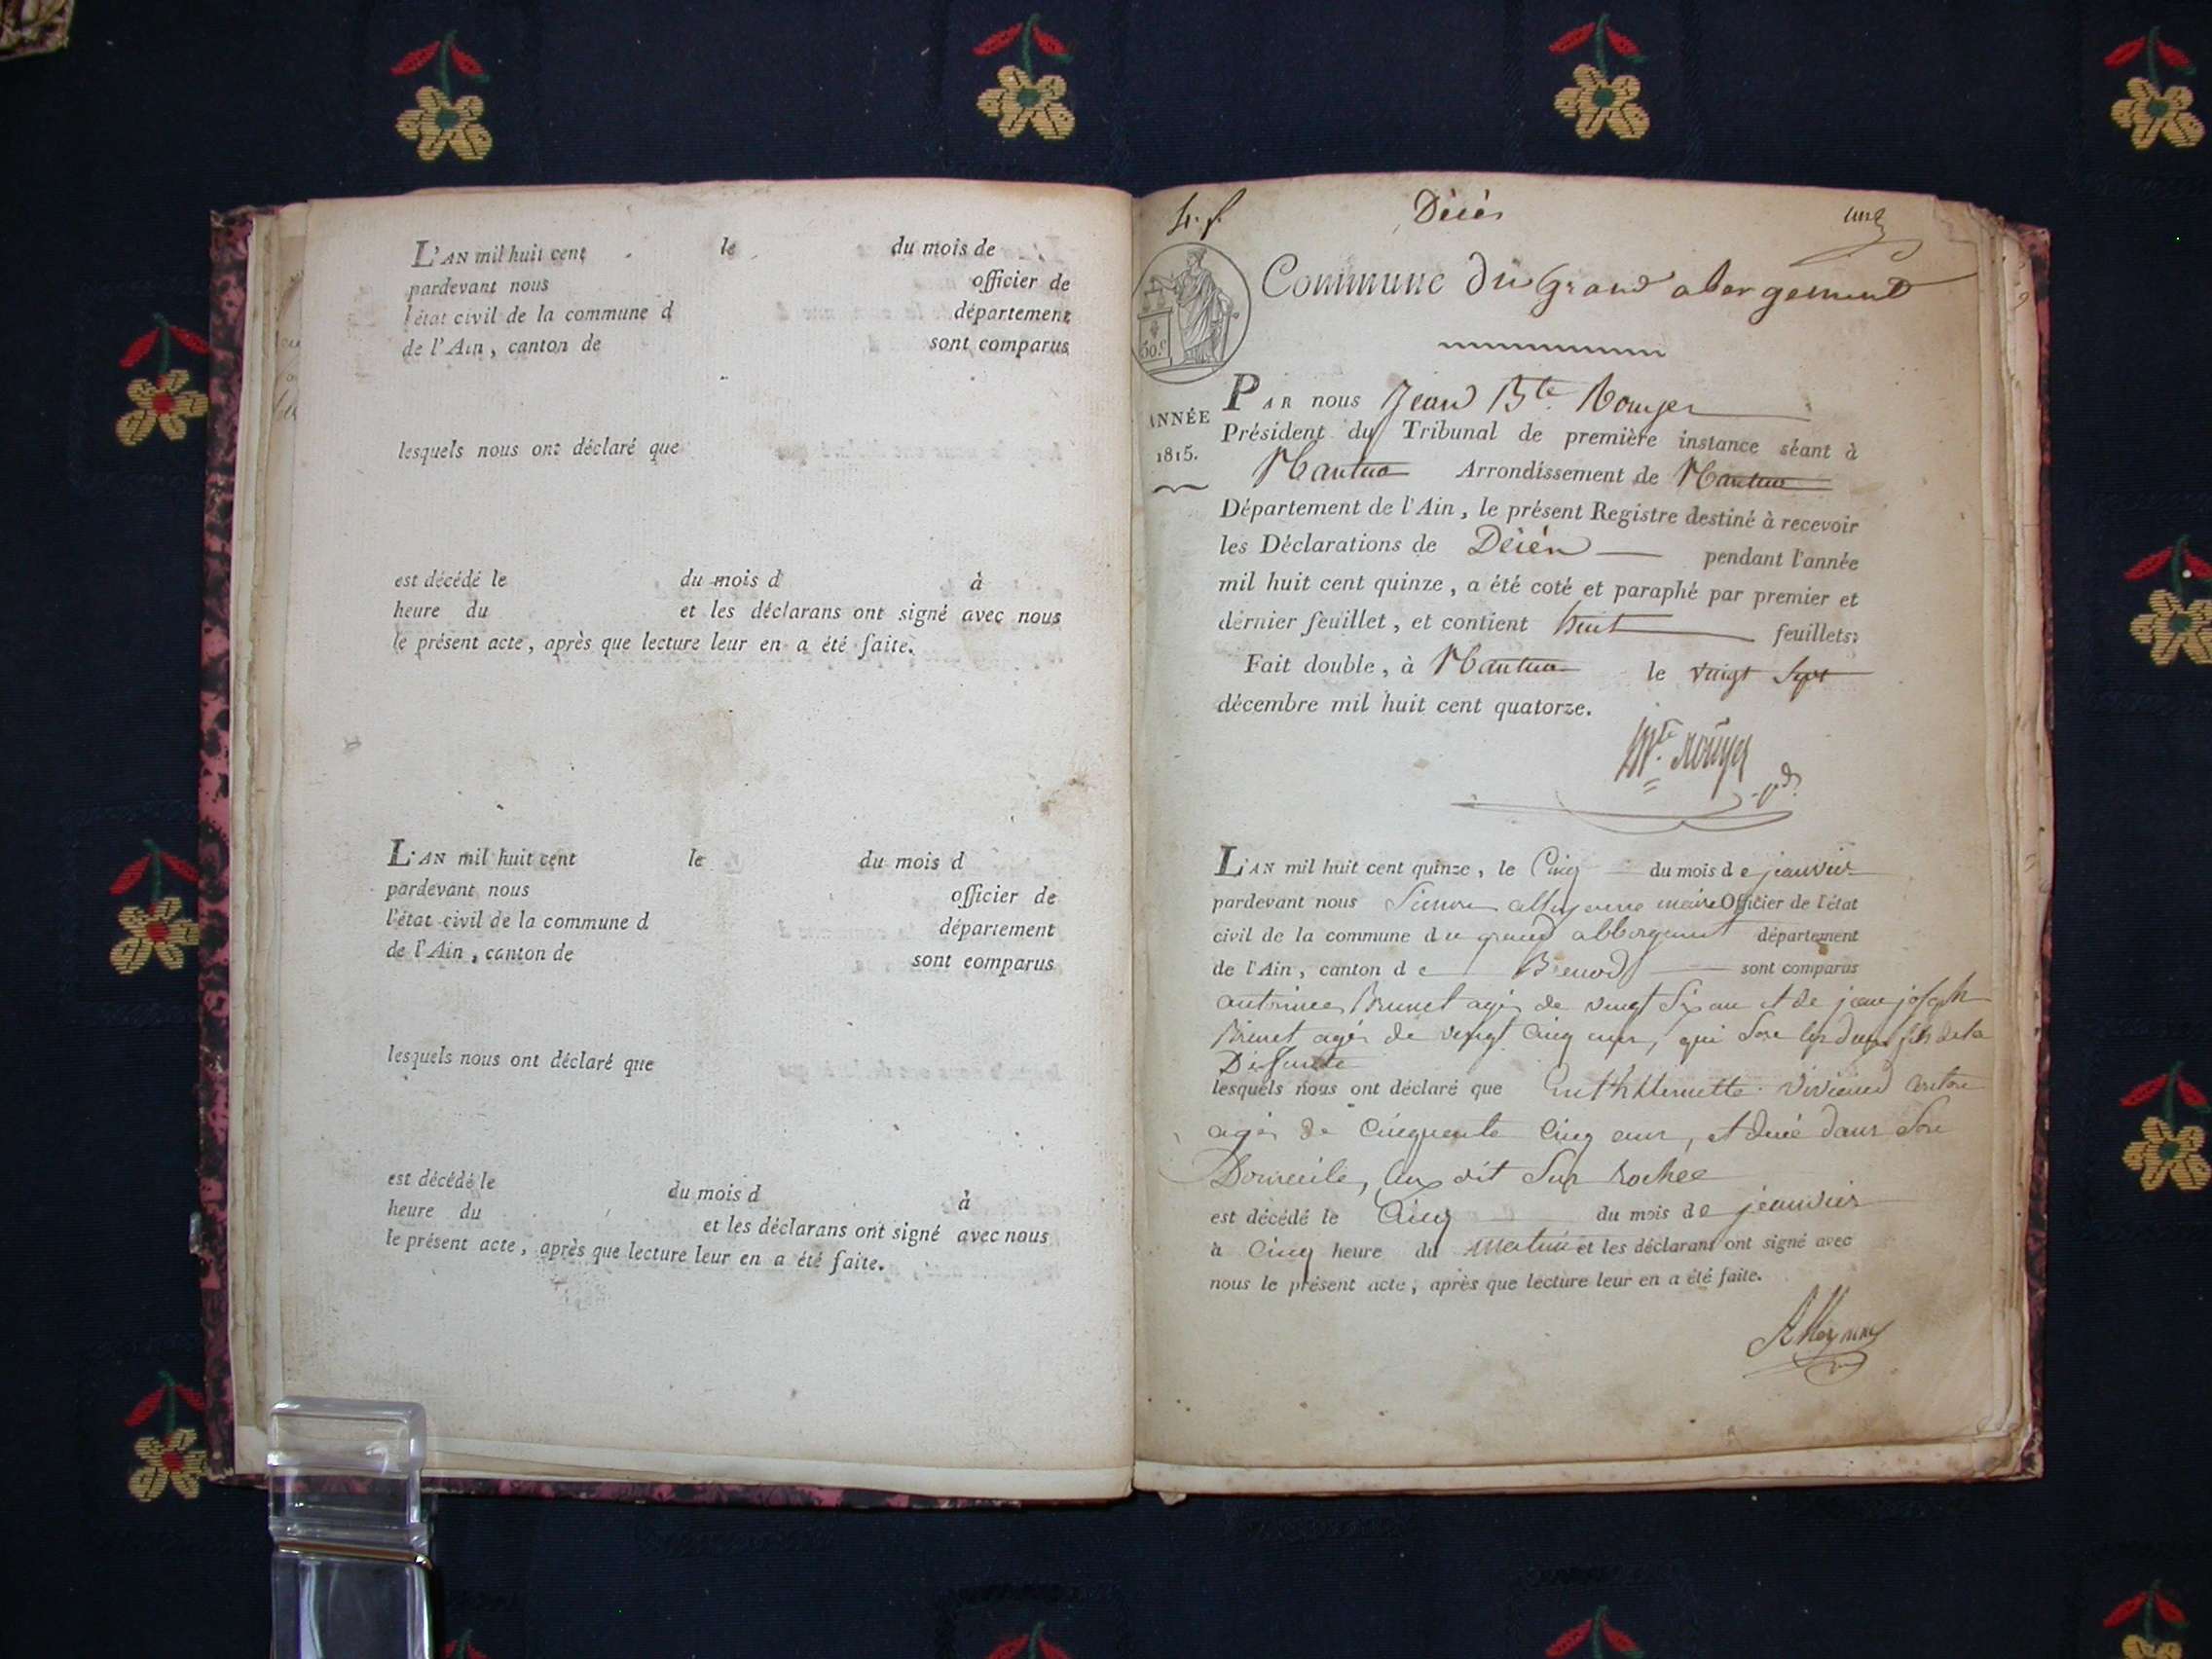 L'AN mil huit cent le du mois de
pardevant nous officier de
l'état civil de la commune d département
de l'Ain, canton de sont comparus
lesquels nous ont déclaré que
est décédé le du mois d à
heure du et les déclarans ont signé avec nous
le présent acte, après que lecture leur en a été faite.
L'AN mil huit cent le du mois d
pardevant nous officier de
l'état civil de la commune d département
de l'Ain, canton de sont comparus
lesquels nous ont déclaré que
est décédé le du mois d à
heure du et les déclarans ont signé avec nous
le présent acte, après que lecture leur en a été faite.
Décès
Commune du Grand abergement
50 c.
ANNÉE
1815.
PAR nous Jean Bte Rouyer
Président du Tribunal de première instance séant à
Nantua Arrondissement de Nantua
Département de l'Ain, le présent Registre destiné à recevoir
les Déclarations de Décès pendant l'année
mil huit cent quinze, a été coté et paraphé par premier et
dernier feuillet, et contient huit feuillets.
Fait double, à Nantua le vingt sept
décembre mil huit cent quatorze.
Rouyer
L'AN mil huit cent quinze, le Cinq du mois de jeanvier
pardevant nous Simon maire Officier de l'état
civil de la commune du grand abbergement département
de l'Ain, canton de Brenod sont comparus
antoinee Brunet agés de vingt Six an et de jean joseph
Brunet agés de vingt Cinq ans, qui Son les deux fils de la
Difunte
lesquels nous ont déclaré que
agés de Cinquente Cinq ans, et décé dans Son
Domicile, lieux dit Sur Rochee
est décédé le Cinq du mois de jeanvier
à Cinq heure du Matin et les déclarans ont signé avec
nous le présent acte, après que lecture leur en a été faite.